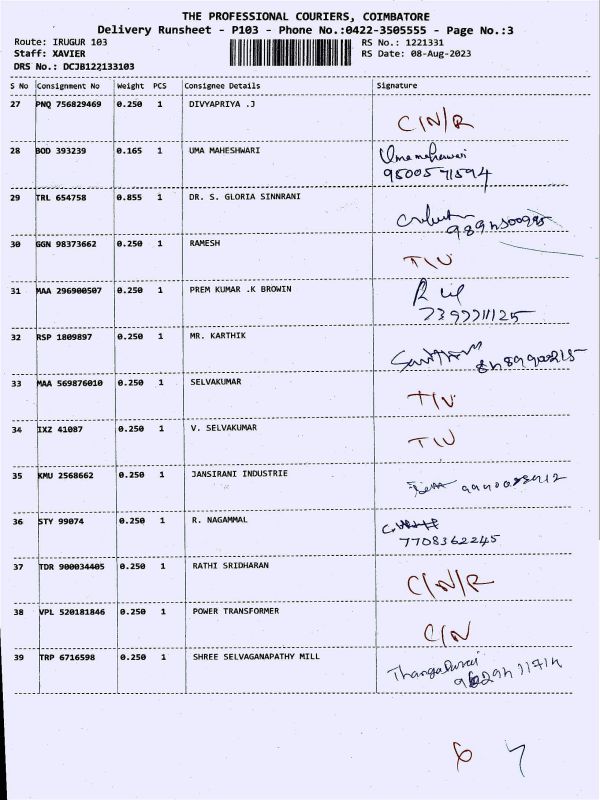 THE PROFESSIONAL COURIERS, COIMBATORE
Delivery Runsheet - P103 - Phone No.:0422-3505555 - Page No.:3
Route: IRUGUR 103 RS No.: 1221331
Staff: XAVIER RS Date: 08-Aug-2023
DRS No.: DCJB122133103
S No Consignment No Weight PCS Consignee Details Signature
27 PNQ 756829469 0.250 1 DIVYAPRIYA .J
C/N/R
28 BOD 393239 0.165 1 UMA MAHESHWARI Uma maheswari
9500571594
29 TRL 654758 0.855 1 DR. S. GLORIA SINNRANI
30 GGN 98373662 0.250 1 RAMESH
T/N
31 MAA 296900507 0.250 1 PREM KUMAR .K BROWIN
32 RSP 1809897 0.250 1 MR. KARTHIK
33 MAA 569876010 0.250 1 SELVAKUMAR
T/N
34 IXZ 41087 0.250 1 V. SELVAKUMAR
T/N
35 KMU 2568662 0.250 1 JANSIRANI INDUSTRIE
36 STY 99074 0.250 1 R. NAGAMMAL
7708362245
37 TDR 900034405 0.250 1 RATHI SRIDHARAN
C/N/R
38 VPL 520181846 0.250 1 POWER TRANSFORMER
C/N
39 TRP 6716598 0.250 1 SHREE SELVAGANAPATHY MILL
6 7